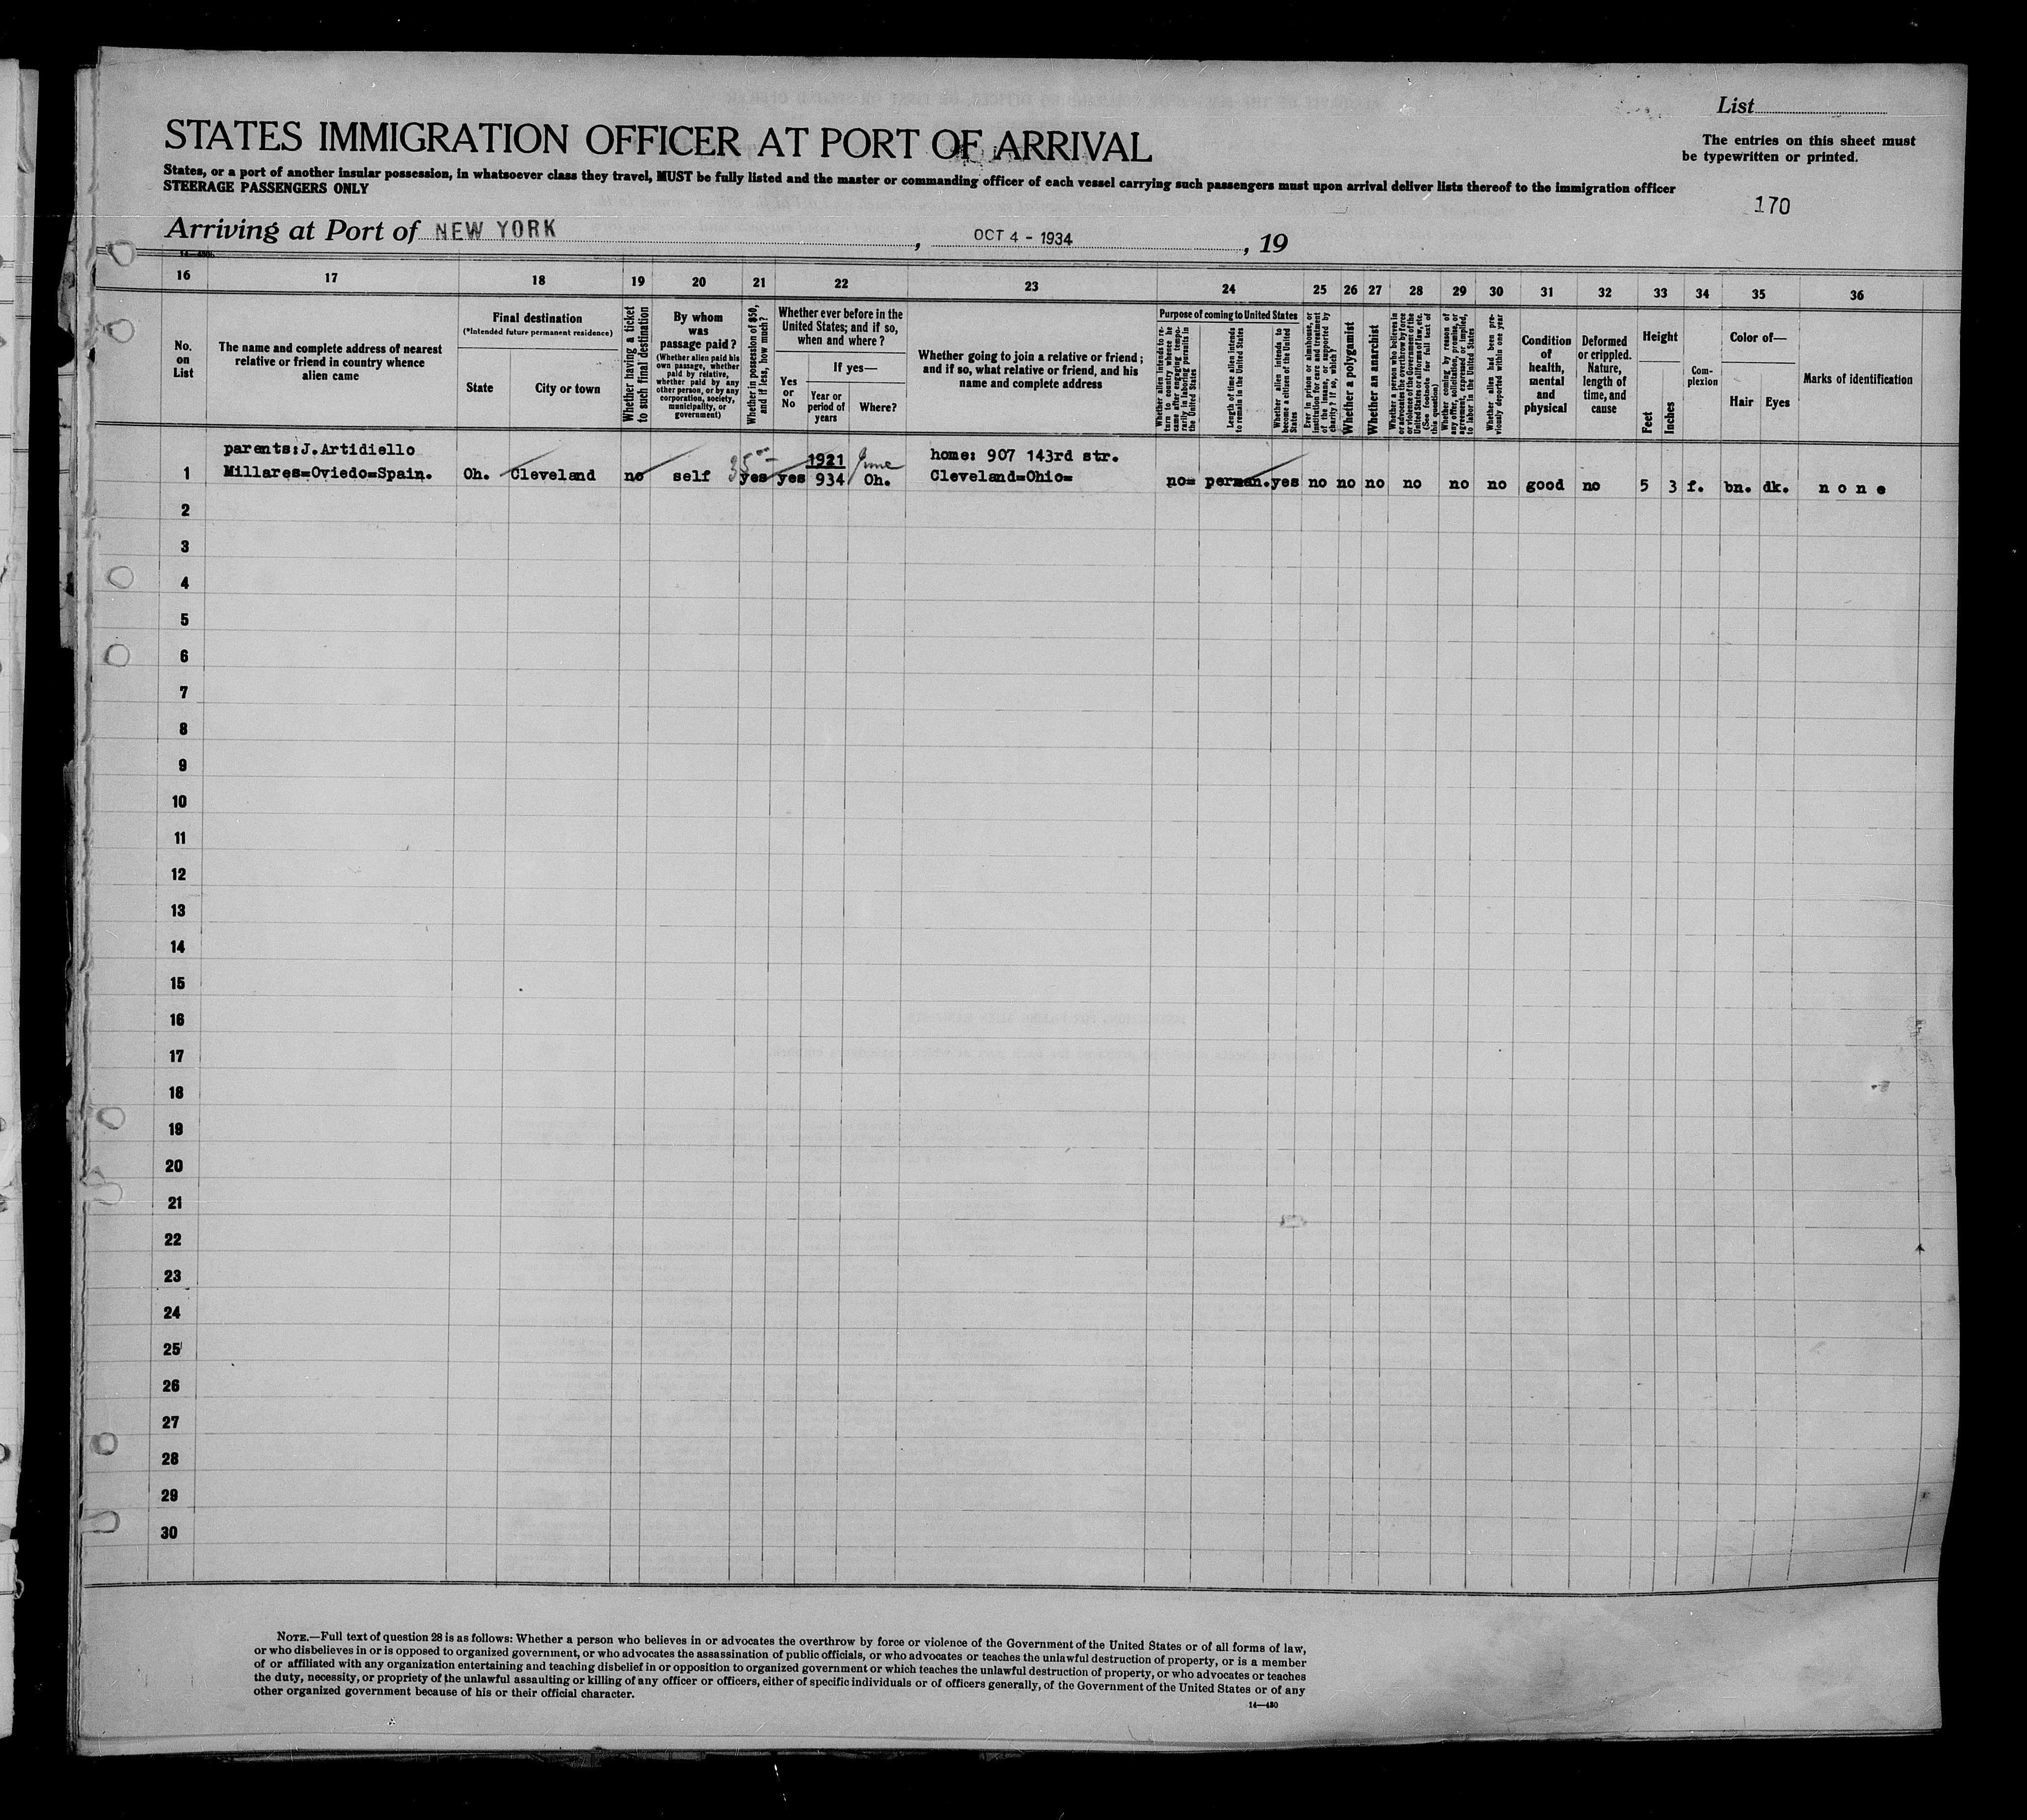 List
STATES IMMIGRATION OFFICER AT PORT OF ARRIVAL
The entries on this sheet must
be typewritten or printed.
States, or a port of another insular possession, in whatsoever class they travel, MUST be fully listed and the master or commanding officer of each vessel carrying such passengers must upon arrival deliver lists thereof to the immigration officer
STEERAGE PASSENGERS ONLY
170
Arriving at Port of NEW YORK, OCT 4 - 1934, 19
16 17 18 19 20 21 22 23 24 25 26 27 28 29 30 31 32 33 34 35 36
No.
on
List
The name and complete address of nearest
relative or friend in country whence
alien came
Final destination
(*Intended future permanent residence)
State
City or town
Whether having a ticket
to such final destination
By whom
was
passage paid?
(Whether alien paid his
own passage, whether
paid by relative,
whether paid by any
other person, or by any
corporation, society,
municipality, or
government)
Whether in possession of $50,
and if less, how much?
Whether ever before in the
United States; and if so,
when and where?
Yes
or
No
If yes—
Year or
period of
years
Where?
Whether going to join a relative or friend;
and if so, what relative or friend, and his
name and complete address
Purpose of coming to United States
Whether alien intends to re-
turn to country whence he
came after engaging tempo-
rarily in laboring pursuits in
the United States
Length of time alien intends
to remain in the United States
Whether alien intends to
become a citizen of the United
States
Ever in prison or almshouse, or
institution for care and treatment
of the insane, or supported by
charity? If so, which?
Whether a polygamist
Whether an anarchist
Whether a person who believes in
or advocates the overthrow by force
or violence of the Government of the
United States or all forms of law, etc.
(See footnote for full text of
this question)
Whether coming by reason of
any offer, solicitation, promise, or
agreement, expressed or implied,
to labor in the United States
Whether alien had been pre-
viously deported within one year
Condition
of
health,
mental
and
physical
Deformed
or crippled.
Nature,
length of
time, and
cause
Height
Feet
Inches
Com-
plexion
Color of—
Hair
Eyes
Marks of identification
parents:J.Artidiello 35 00 1921 June home: 907 143rd str.
1 Millares=Oviedo=Spain. Oh. Cleveland no self yes yes 934 Oh. Cleveland=Ohio= no= perman. yes no no no no no no good no 5 3 f. bn. dk. none
2
3
4
5
6
7
8
9
10
11
12
13
14
15
16
17
18
19
20
21
22
23
24
25
26
27
28
29
30
NOTE.—Full text of question 28 is as follows: Whether a person who believes in or advocates the overthrow by force or violence of the Government of the United States or of all forms of law,
or who disbelieves in or is opposed to organized government, or who advocates the assassination of public officials, or who advocates or teaches the unlawful destruction of property, or is a member
of or affiliated with any organization entertaining and teaching disbelief in or opposition to organized government or which teaches the unlawful destruction of property, or who advocates or teaches
the duty, necessity, or propriety of the unlawful assaulting or killing of any officer or officers, either of specific individuals or of officers generally, of the Government of the United States or of any
other organized government because of his or their official character.
14—430